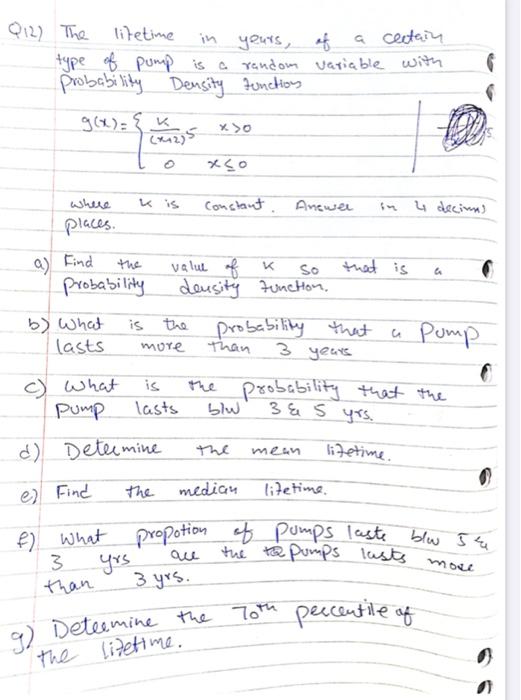 Q12) The lifetime in years, of a certain
type of pump is a random variable with
Probability Density function
g(x) = { K/(x+2)^5 x>0
0 x≤0
where K is constant. Answer in 4 decimal
places.
a) Find the value of K so that is a
Probability density function.
b) What is the probability that a Pump
lasts more than 3 years
c) What is the probability that the
pump lasts b/w 3 & 5 yrs.
d) Determine the mean lifetime.
e) Find the median lifetime.
f) What propotion of pumps lasts b/w 5 &
3 yrs are the pumps lasts more
than 3 yrs.
g) Determine the 70th percentile of
the lifetime.